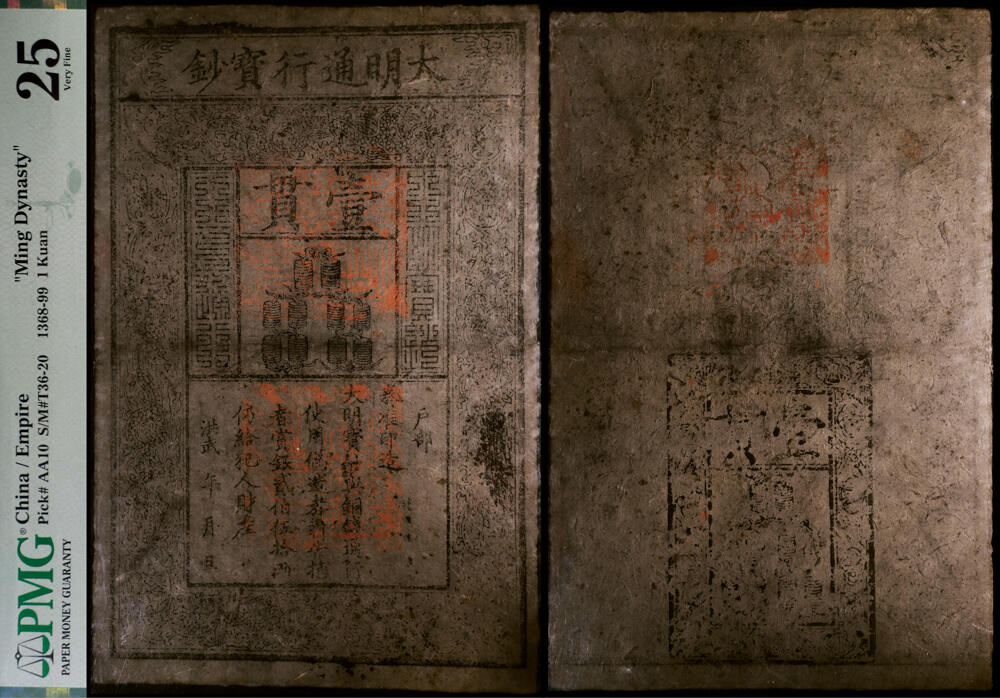 PMG® China / Empire "Ming Dynasty" 25
Pick# AA10 S/M#T36-20 1368-99 1 Kuan Very Fine
PAPER MONEY GUARANTY
大明通行寶鈔
壹貫
大明寶鈔
天下通行
戶部
奏准印造
大明寶鈔與銅錢通行
使用偽造者斬告捕
者賞銀貳佰伍拾兩
仍給犯人財產
洪武 年 月 日